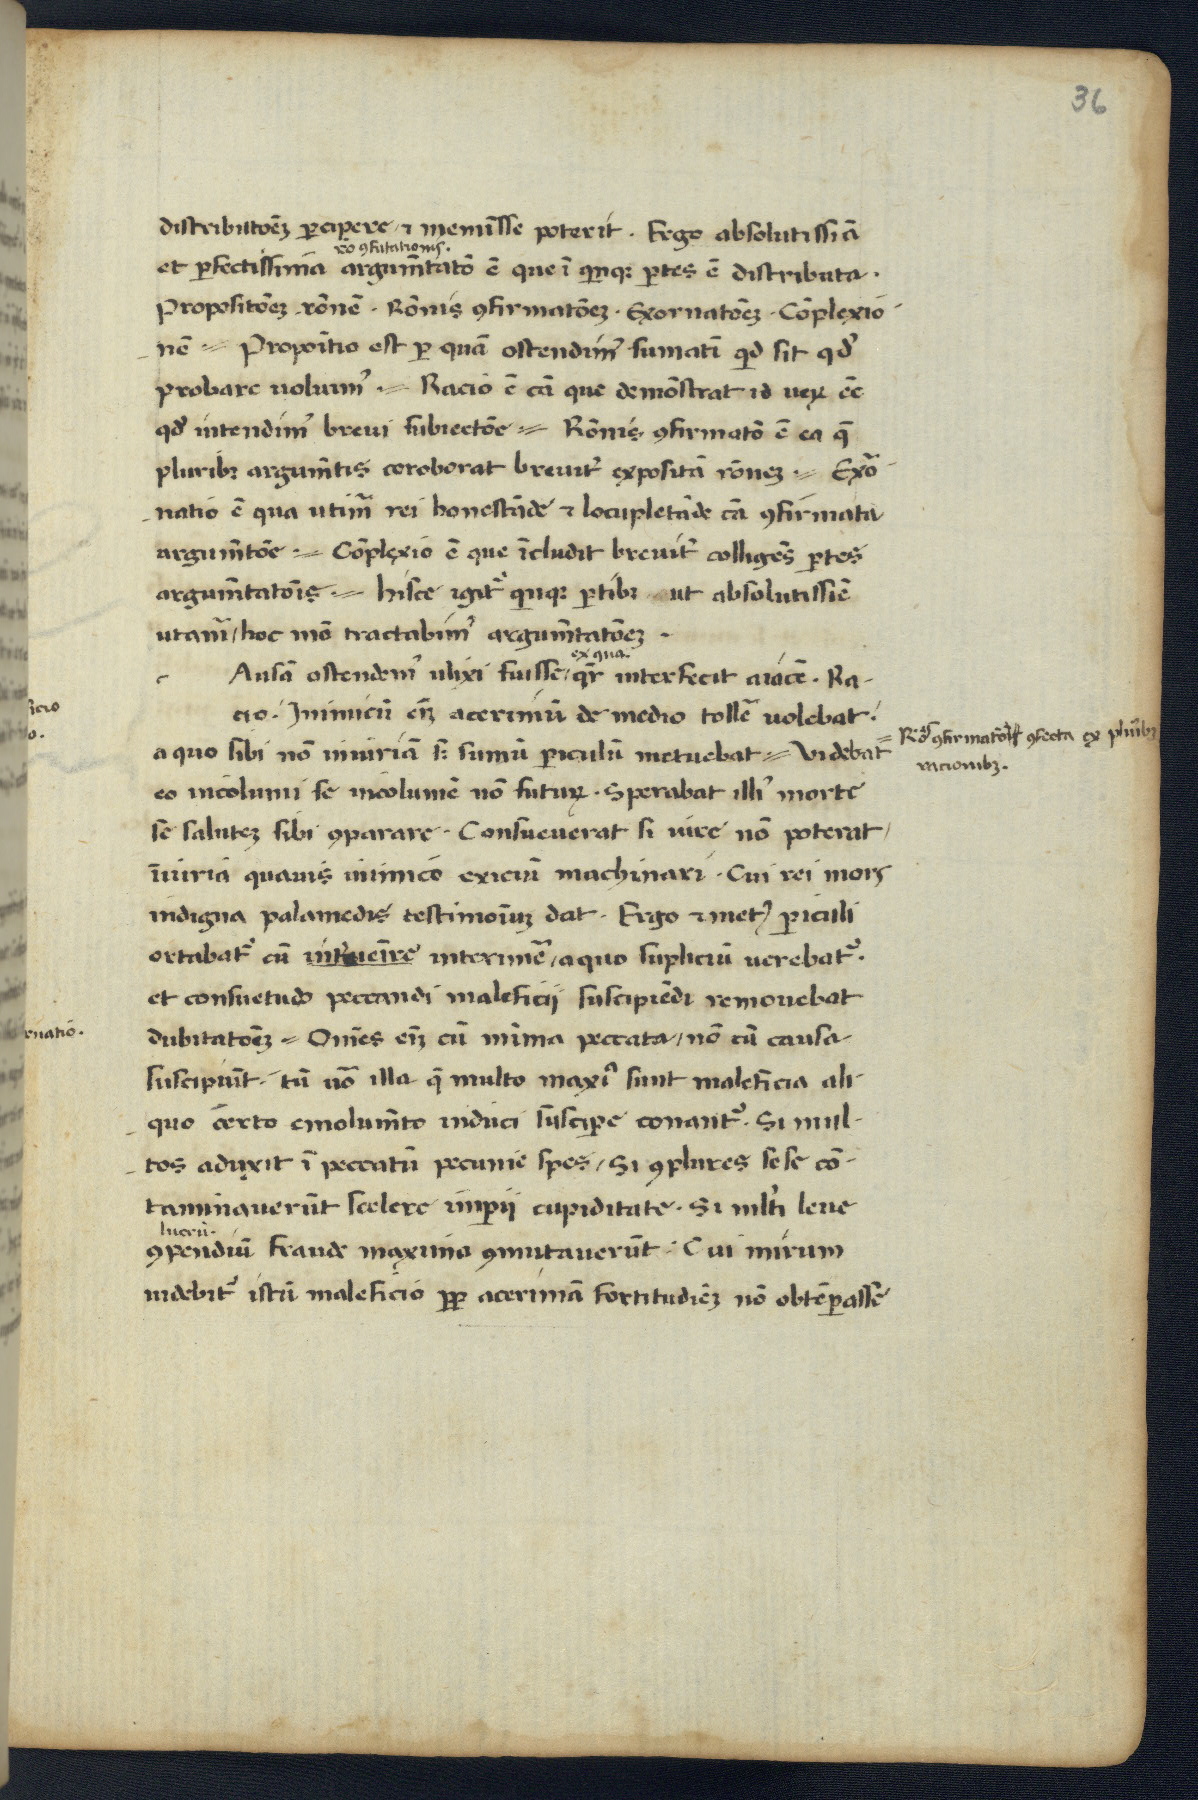 36
distributōeꝫ ꝑcipere / ⁊ meminīsse poterit . Ergo absolutissiā
rō ꝯfutationis .
et ꝑfectissima argumn̄tatō ē que ī qͥnqꝫ ꝑtes ē distributa .
Propositōeꝫ rōnē . Rōnis ꝯfirmatōeꝫ . Exornatōeꝫ . Cōplexio
nē . Propoītio est ꝑ quā ostendimꝰ sumatī qͥd sit qđ
probare uolumꝰ . Racio ē cā que demōstrat id ueꝝ eē
qđ intendimꝰ breui subiectōe . Rōnis ꝯfirmatō ē ea q̄
pluribꝫ argumn̄tis coroborat breuit̄ expositā rōneꝫ . Exō
natio ē qua utim̄ rei honestāde ⁊ locupletāde cā ꝯfirmata
argumn̄tōe . Cōplexio ē que īcludit breuit̄ colligēs ꝑtes
argumn̄tatōis . hisce igit̄ qͥnqꝫ ꝑtibꝫ ut absolutissiē
utam̄ / hoc mō tractabimꝰ argumn̄tatōeꝫ .
ex qua .
c Ausā ostendemꝰ ulixi fuisse / qr̄ interfecit aiacē . Ra
cio . Inimicū em̄ acerimū de medio tollē uolebat .
a quo sibi nō iniuriā sꝫ sumū ꝑiculū metuebat . Videbat
Rōis ꝯfirmatō ꝯfecta ex plurībꝫ
racionibꝫ .
eo incolumi se incolumē nō futuꝝ . Sperabat illiꝰ morte
se saluteꝫ sibi ꝯparare . Consueuerat si iure nō poterat /
īiuria quauis inimico exiciū machinari . Cui rei mors
indigna palamedis testimoiuꝫ dat . Ergo ⁊ metꝰ ꝑiculi
ortabat̄ cū interimē / a quo supliciū uerebat̄ .
et consuetudo peccandi maleficii suscipiēdi remouebat
dubitatōeꝫ . Omēs em̄ cū mīma peccata / nō cū causa
suscipiūt . tū uō illa q̄ multo maxīa sunt maleficia ali
quo certo emolumn̄to induci suscipe conant̄ . Si mul
tos aduxit ī peccatū pecunie spes / Si ꝯplures sese cō
taminauerūt scelere imꝑii cupiditate . Si mlti leue
lucrū .
ꝯpendiū fraude maxima ꝯmutauerūt . Cui mirum
uidebit̄ istū maleficio ꝓp̄ acerimā fortitudieꝫ nō obtēꝑasse
rnatio .